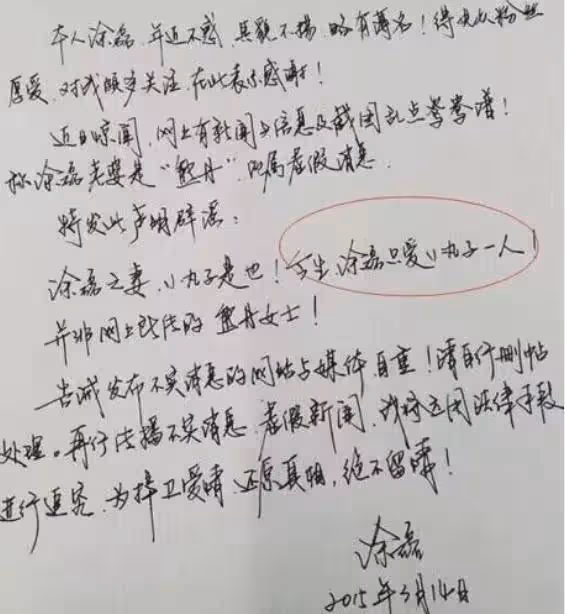 本人涂磊,年近不惑,其貌不扬,略有薄名!得央众粉丝
厚爱,对我颇多关注,在此表示感谢!
近日惊闻,网上有新闻与信息及截图乱点鸳鸯谱!
称涂磊老婆是“熊丹”,此属虚假消息.
特发此声明辟谣:
涂磊之妻,小丸子是也!今生,涂磊只爱小丸子一人!
并非网上所传的熊丹女士!
告诫发布不实消息的网站与媒体,自重!请自行删帖
处理。再行传播不实消息,虚假新闻,我将运用法律手段
进行追究,为捍卫爱情,还原真相,绝不留情!
涂磊
2015年3月14日